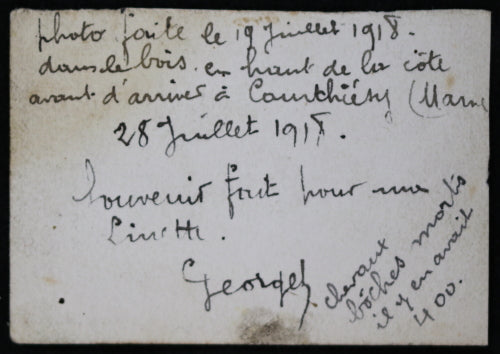 photo faite le 19 Juillet 1918.
dans le bois en haut de la côte
avant d'arriver à (Marne
28 Juillet 1918.
Souvenir fait pour ma
Linette.
Georges
chevaux
bôches morts
il y en avait
400.